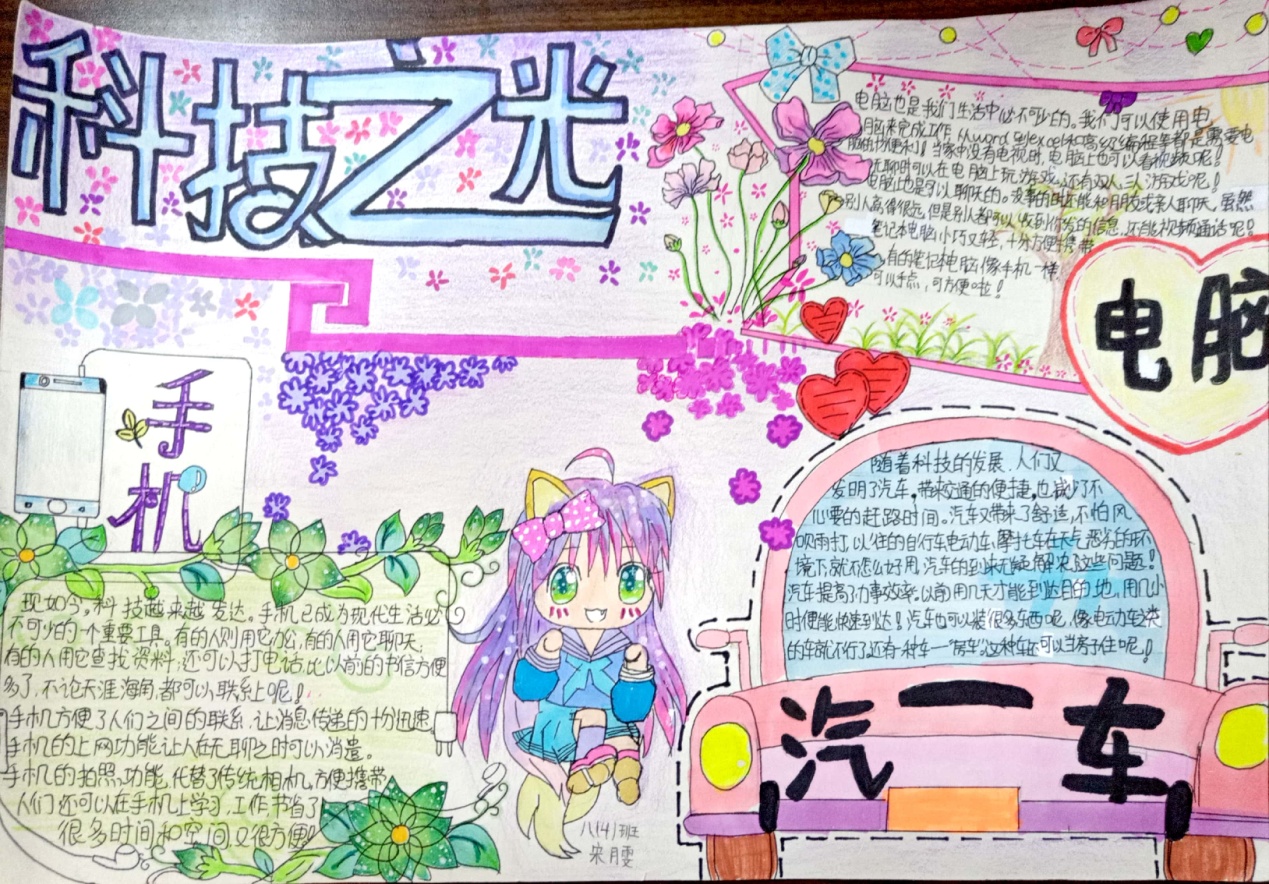 科技之光
电脑也是我们生活中必不可少的。我们可以使用电
脑来完成工作,从word到excel和高级编程等都是需要电
脑的,便利!当家中没有电视时,电脑上也可以看视频呢!
无聊时可以在电脑上玩游戏,还有双人、三人游戏呢!
电脑上也是可以聊天的。没事的时还能和朋友或亲人聊天,虽然
别人离得很远,但是别人都可以收到你发的信息,还能视频通话呢!
笔记本电脑小巧又轻,十分方便携带
有的笔记本电脑像手机一样
可以手点,可方便啦!
电脑
手机
现如今,科技越来越发达。手机已成为现代生活必
不可少的一个重要工具。有的人则用它办公,有的人用它聊天,
有的人用它查找资料;还可以打电话,比以前的书信方便
多了,不论天涯海角,都可以联系上呢!
手机方便了人们之间的联系,让消息传递的十份迅速
手机的上网功能让人在无聊之时可以消遣。
手机的拍照功能,代替了传统相机,方便携带
人们还可以在手机上学习、工作,节省了
很多时间和空间,又很方便!
随着科技的发展,人们又
发明了汽车。带来交通的便捷,也减少了不
必要的赶路时间。汽车又带来了舒适,不怕风
吹雨打,以往的自行车、电动车、摩托车在天气恶劣的环
境下,就不怎么好用,汽车的到来无能解决这些问题!
汽车提高了办事效率。以前用几天才能到达目的地,用几小
时便能快速到达!汽车也可以装很多东西呢,像电动车之类
的车就不行了,还有一种车一"房车"这种车还可以当房子住呢!
汽一车
八(4)班
宋月雯